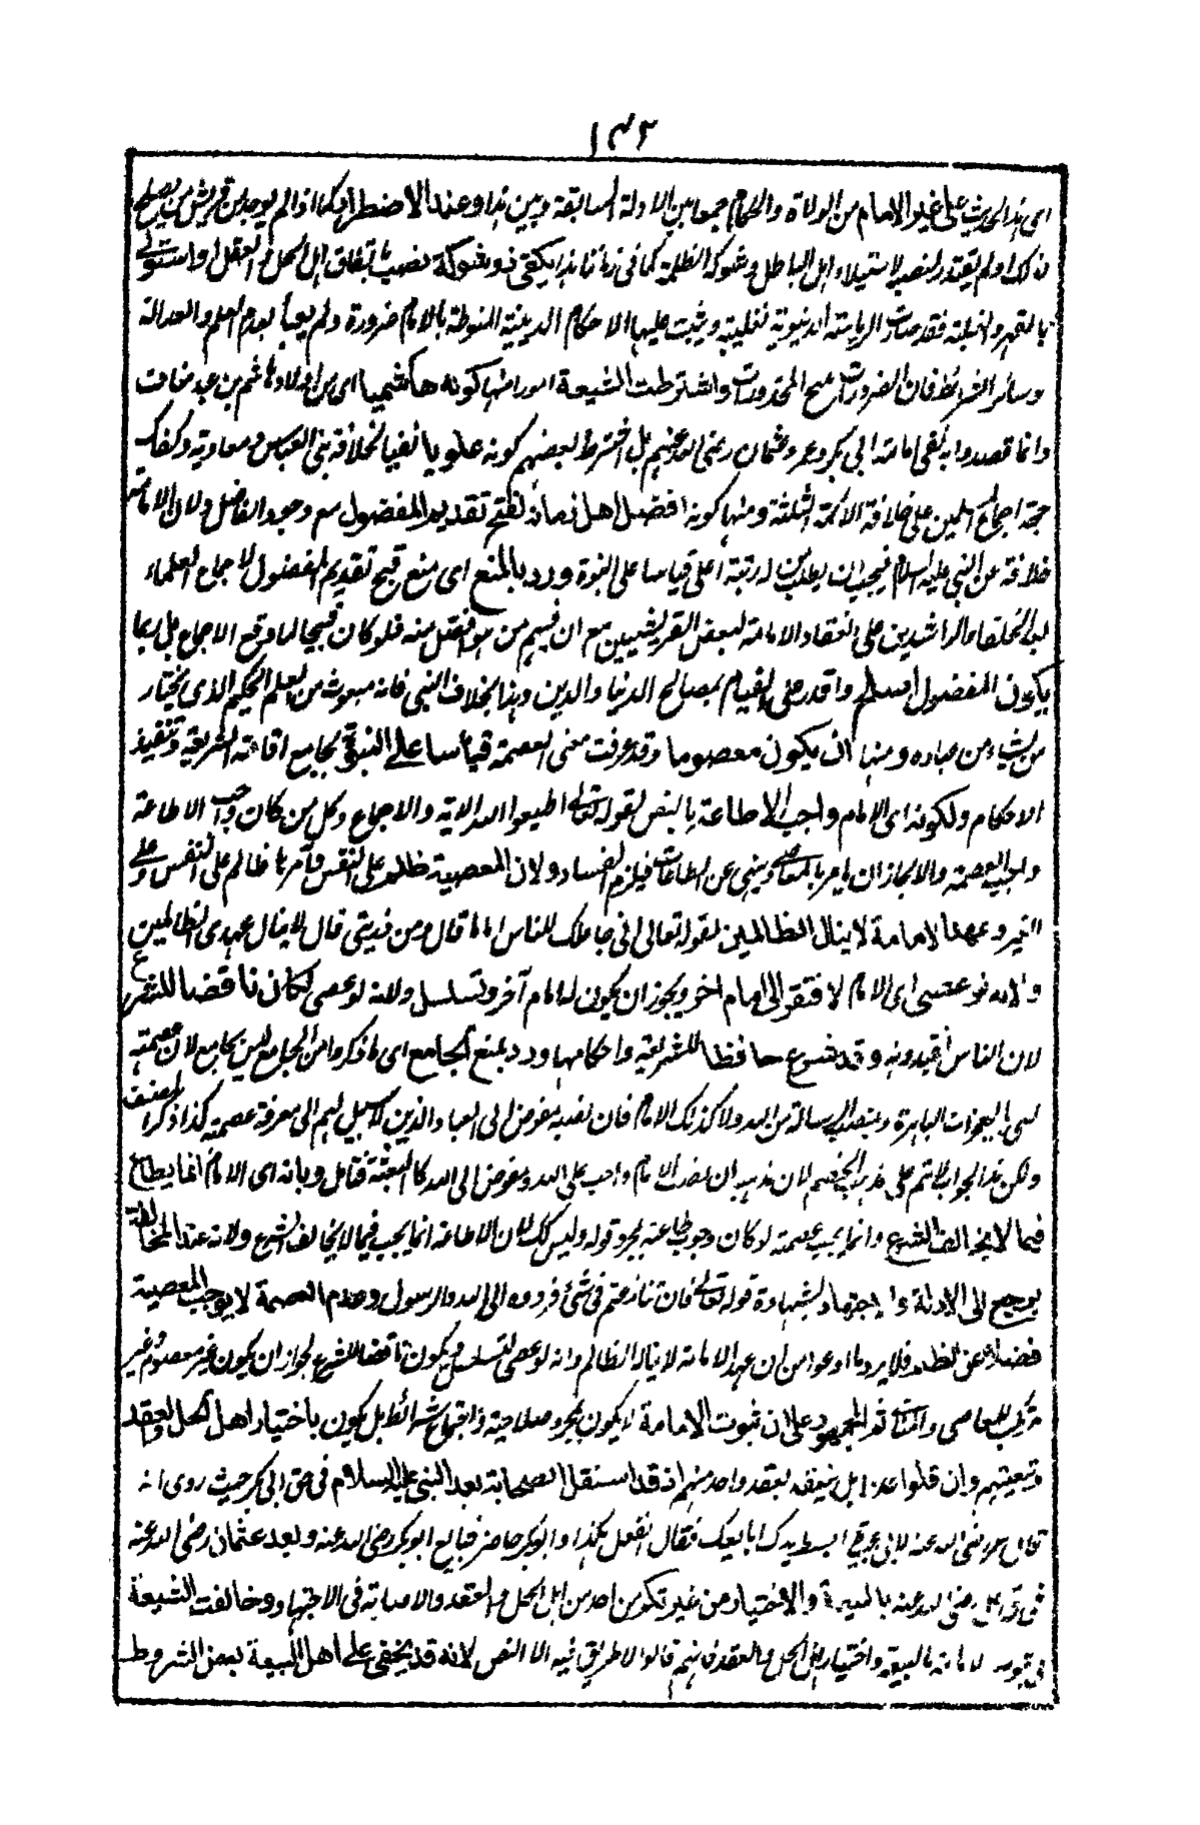 ١٣٢
اى هذا الحديث على غير الامام من الولاة والحكام جمعا بين الادلة السابقة وبين هذا وعند الاضطرار كما اذا لم يوجد من قريش من يصلح
لذلك او لم يقتدر لنصبه لاستيلاء اهل الباطل وشوكة الظلمة كما فى زماننا هذا يكفى ذو شوكة نصب باتفاق اهل الحل والعقل او استولى
بالقهر والغلبة فقد صارت الرياسة الدنيوية تغلبية ويثبت عليها الاحكام الدينية المنوطة بالامام ضرورة ولم يعبأ بعدم العلم والعدالة
وسائر الشرائط فان الضرورات تبيح المحذورات واشترطت الشيعة امورا منها كونه هاشميا اى من اولاد هاشم بن عبد مناف
وانما قصدوا به نفى امامة ابى بكر وعمر وعثمان رضى الله عنهم بل اشترط بعضهم كونه علويا نفيا لخلافة بنى العباس ومعاوية وكفاك
حجة اجماع المسلمين على خلافة الائمة الثلثة ومنها كونه افضل اهل زمانه لقبح تقديم المفضول مع وجود الفاضل ولان الامامة
خلافة عن النبى عليه السلام فيجب ان يطلب من له رتبة اعلى قياسا على النبوة ورد بالمنع اى منع قبح تقديم المفضول لاجماع العلماء
بعد الخلفاء الراشدين على انعقاد الامامة لبعض القريشيين مع ان فيهم من هو افضل منه فلو كان قبيحا لما وقع الاجماع بل ربما
يكون المفضول اصلح واقدر على القيام بمصالح الدنيا والدين وهذا بخلاف النبى فانه مبعوث من العليم الحكيم الذى يختار
من يشاء من عباده ومنها ان يكون معصوما وقد عرفت معنى العصمة قياسا على النبوة بجامع اقامة الشريعة وتنفيذ
الاحكام ولكونه اى الامام واجب الاطاعة بالنص لقوله تعالى اطيعوا الله الاية والاجماع وكل من كان واجب الاطاعة
واجب العصمة والا لجاز ان يامر بالمعاصى وينهى عن الطاعات فيلزم الفساد ولان المعصية ظلم على النفس وآمرها ظالم على النفس وعلى
الغير وعهد الامامة لا ينال الظالمين لقوله تعالى انى جاعلك للناس اماما قال ومن ذريتى قال لا ينال عهدى الظالمين
ولانه لو عصى اى الامام لافتقر الى امام اخر ويجوز ان يكون له امام آخر وتسلسل ولانه لو عصى لكان ناقضا للشرع
لان الناس يقيدونه وقد شرع حافظا للشريعة واحكامها ورد بمنع الجامع اى ما ذكروا من الجامع ليس بجامع لان عصمته
النبى بالمعجزات الباهرة وبنصب الرسالة من الله ولا كذلك الامام فان نصبه مفوض الى العباد الذين لا سبيل لهم الى معرفة عصمته كذا ذكر المصنف
ولكن هذا الجواب لا يتم على مذهب الخصم لان مذهبه ان نصب الامام واجب على الله ومفوض الى الله كالبعثة فتامل وبانه اى الامام انما يطاع
فيما لا يخالف الشرع وانما يجب عصمته لو كان وجوب طاعته بمجرد قوله وليس كذلك لان الاطاعة انما يجب فيما لا يخالف الشرع ولانه عند المخالفة
يرجع الى الادلة والاجتهاد بشهادة قوله تعالى فان تنازعتم فى شئ فردوه الى الله والرسول وعدم العصمة لا يوجب المعصية
فضلا عن الظلم فلا يرد ما ادعوا من ان عهد الامامة لا يناله الظالم وانه لو عصى لتسلسل ويكون ناقضا للشرع لجواز ان يكون غير معصوم وغير
مرتكب للمعاصى والمناهى ثم الجمهور على ان ثبوت الامامة لا يكون بمجرد صلاحيته واجتماع شرائط بل يكون باختيار اهل الحل والعقد
وتبعيتهم وان قلوا عددا بل ينعقد بعقد واحد منهم اذ قد استقل الصحابة بعد النبى عليه السلام فى حق ابى بكر حيث روى انه
قال عمر رضى الله عنه لابى عبيدة ابسط يدك ابايعك فقال اتفعل هكذا وابو بكر حاضر فبايع ابو بكر رضى الله عنه وبعد عثمان رضى الله عنه
فى حق على رضى الله عنه بالبيعة والاختيار من غير نكير من احد من اهل الحل والعقد والاصابة فى الاجتهاد وخالفت الشيعة
فى ثبوت الامامة بالبيعة واختيار اهل الحل والعقد فانهم قالوا لا طريق فيه الا النص لانه قد يخفى على اهل البيعة بعض الشروط